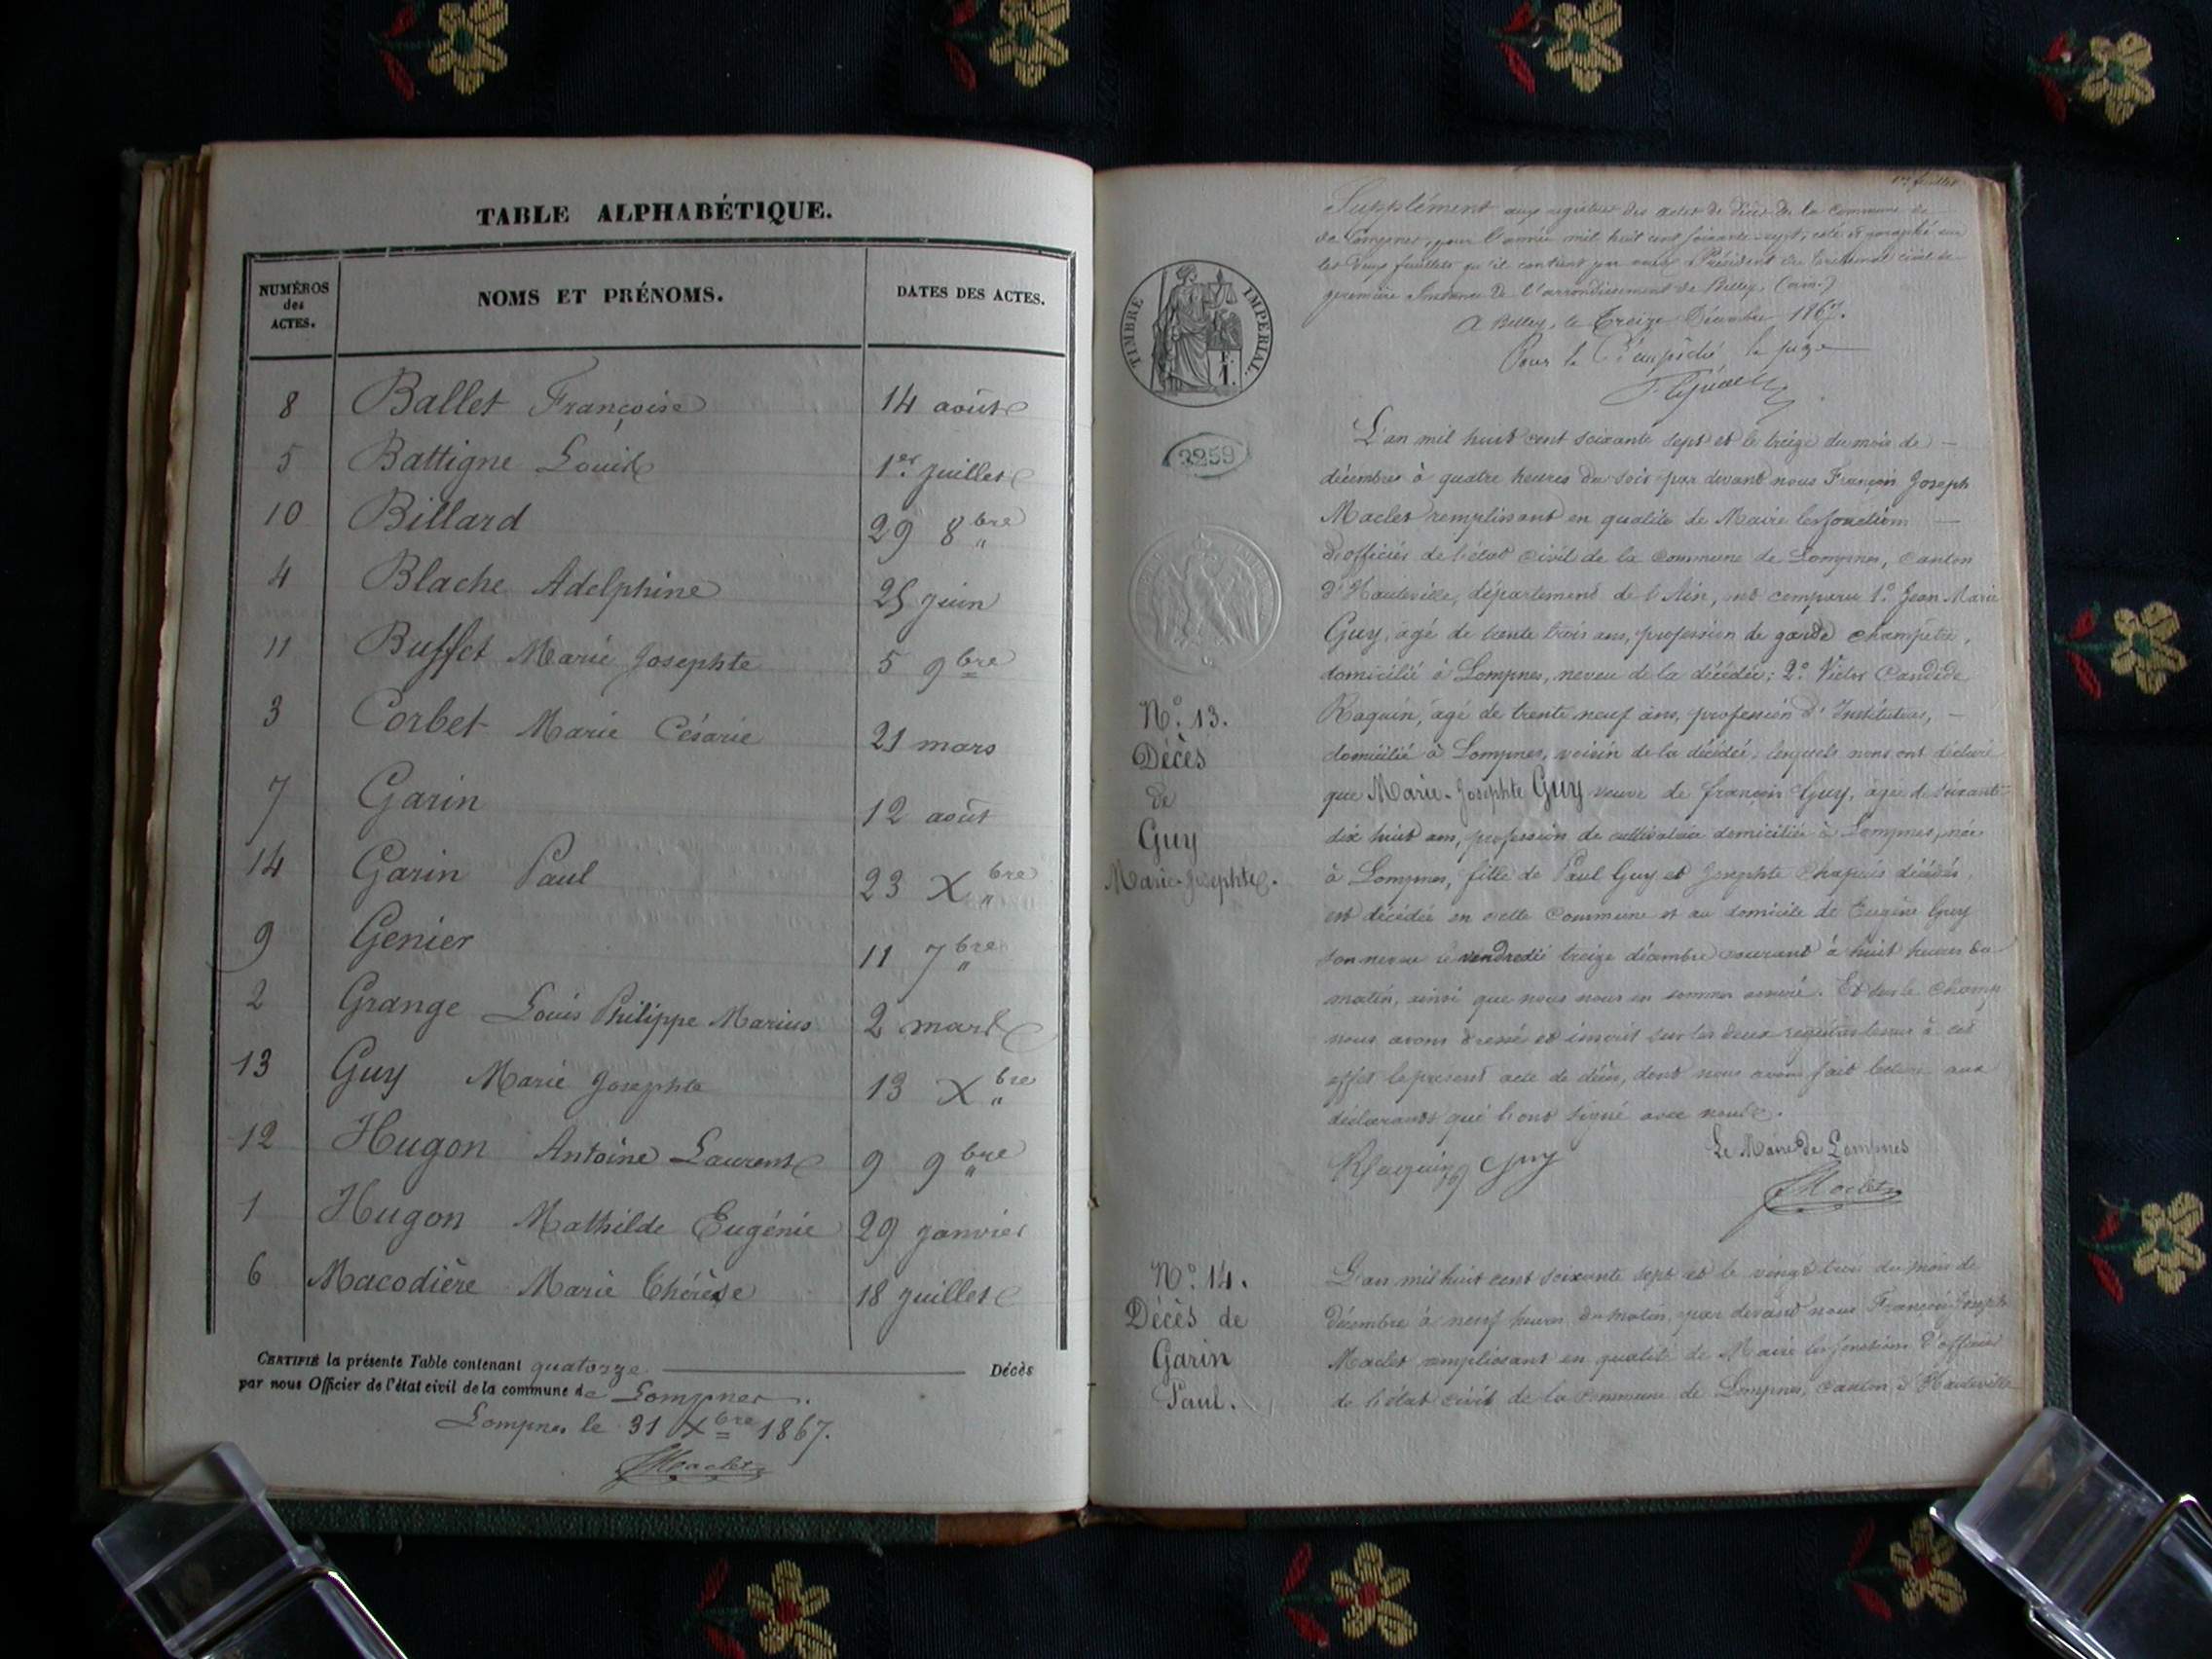 TABLE ALPHABÉTIQUE.
NUMÉROS des ACTES.
NOMS ET PRÉNOMS.
DATES DES ACTES.
8 Ballet Françoise 14 août
5 Battigne Louis 1er juillet
10 Billard 29 8bre
4 Blache Adelphine 25 juin
11 Buffet Marie Josephte 5 9bre
3 Corbet Marie Césarie 21 mars
7 Garin 12 août
14 Garin Paul 23 Xbre
9 Genier 11 7bre
2 Grange Louis Philippe Marius 2 mars
13 Guy Marie Josephte 13 Xbre
12 Hugon Antoine Laurent 9 9bre
1 Hugon Mathilde Eugénie 29 janvier
6 Macodière Marie Thérèse 18 juillet
CERTIFIÉ la présente Table contenant quatorze Décès
par nous Officier de l'état civil de la commune de Lompnes.
Lompnes le 31 Xbre 1867.
Maclet
1er feuillet
Supplément aux registres des actes de Décès de la commune de
de Lompnes, pour l'année mil huit cent soixante-sept, coté et paraphé sur
les deux feuillets qu'il contient par nous Président du Tribunal civil de
première Instance de l'arrondissement de Belley, (ain.)
A Belley, le Treize Décembre 1867.
Pour le Pt empêché le juge
TIMBRE IMPÉRIAL.
1 F.
3259
L'an mil huit cent soixante sept et le treize du mois de
décembre à quatre heures du soir par devant nous François Joseph
Maclet remplissant en qualité de Maire les fonctions
d'officier de l'état civil de la commune de Lompnes, canton
d'Hauteville, département de l'Ain, ont comparu 1.° Jean-Marie
Guy, âgé de trente trois ans, profession de garde champêtre,
domicilié à Lompnes, neveu de la décédée; 2.° Victor Candide
Raquin, âgé de trente neuf ans, profession d'Instituteur,
domicilié à Lompnes, voisin de la décédée, lesquels nous ont déclaré
que Marie-Josephte Guy veuve de françois Guy, âgée de soixante
dix huit ans, profession de cultivatrice domiciliée à Lompnes, née
à Lompnes, fille de Paul Guy et Josephte Chapuis décédés,
est décédée en cette commune et au domicile de Eugène Guy
son neveu le vendredi treize décembre courant à huit heures du
matin, ainsi que nous nous en sommes assuré. Et sur le champ
nous avons dressé et inscrit sur les deux registres tenus à cet
effet le présent acte de décès, dont nous avons fait lecture aux
déclarants qui l'ont signé avec nous.
N.° 13.
Décès
de
Guy
Marie-Josephte.
Raquin Guy
Le Maire de Lompnes
Maclet
N.° 14.
Décès de
Garin
Paul.
L'an mil huit cent soixante sept et le vingt trois du mois de
décembre à neuf heures du matin, par devant nous François-Joseph
Maclet remplissant en qualité de Maire les fonctions d'officier
de l'état civil de la commune de Lompnes, canton d'Hauteville